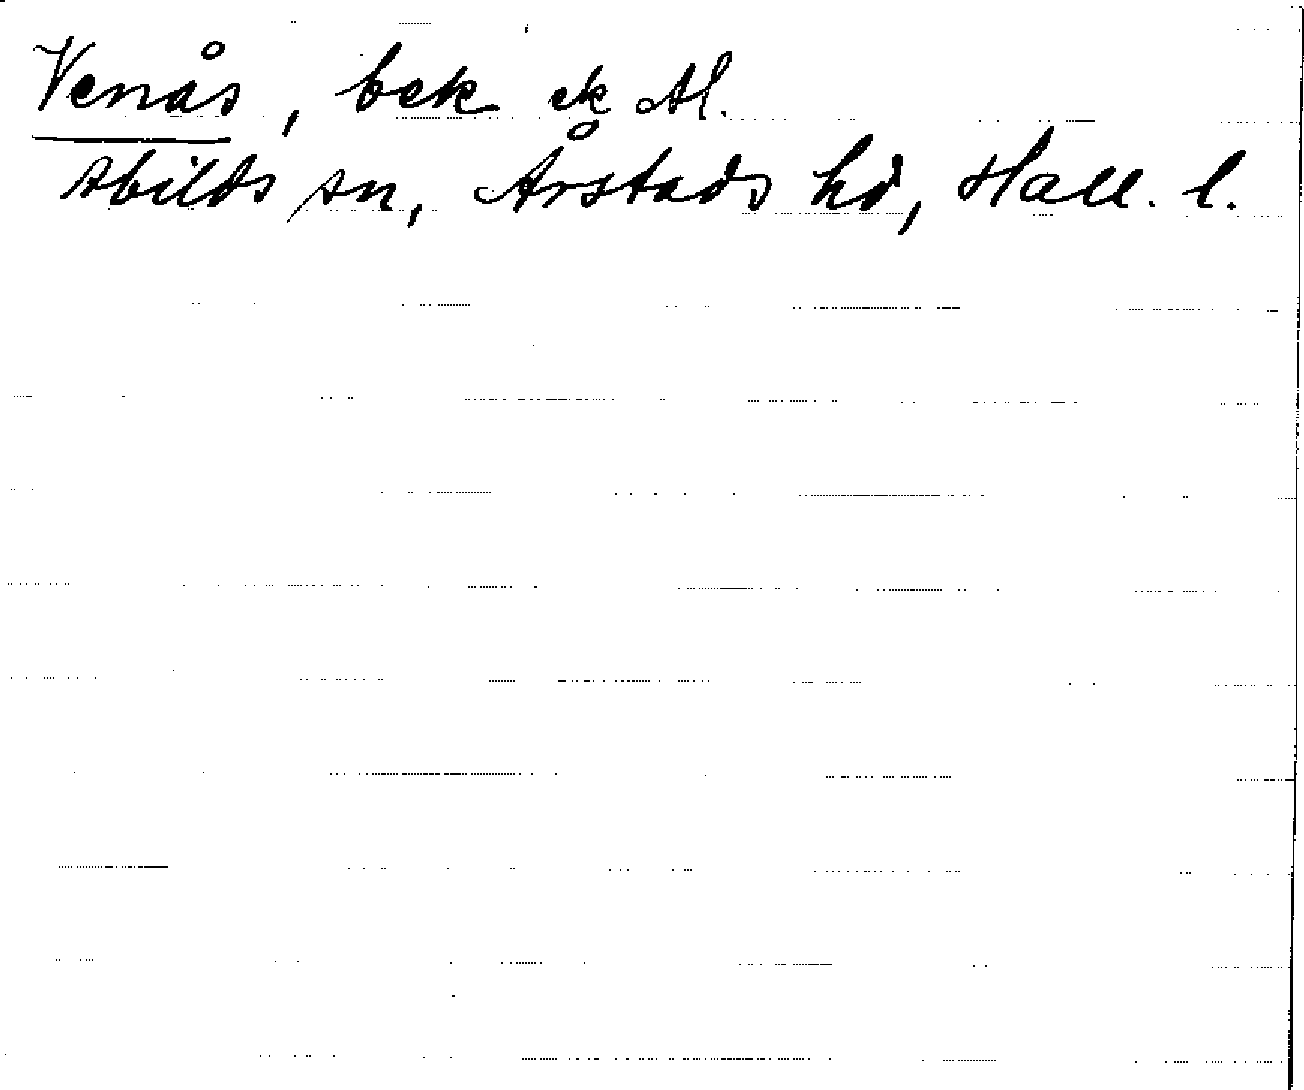 Venås, bek ek Al.
Abilds sn, Årstads hd, Hall. l.